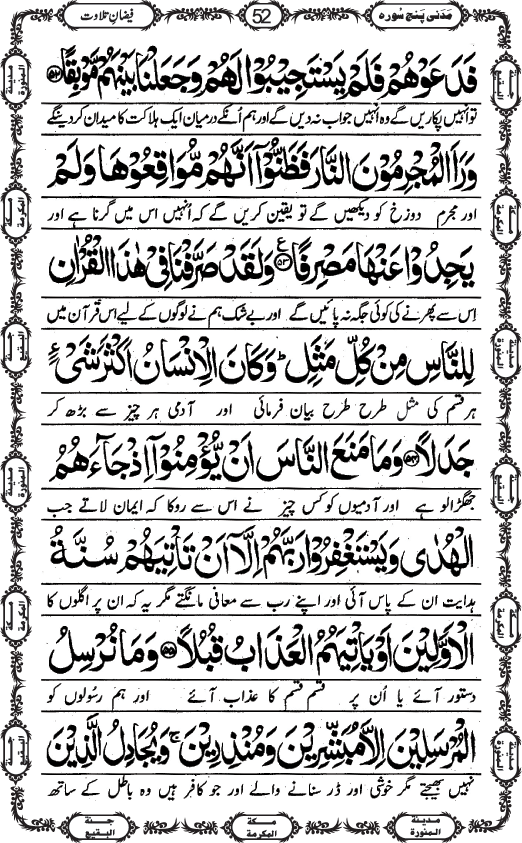 مَدَنی پنج سُورہ
52
فیضانِ تلاوت
فَدَعَوْهُمْ فَلَمْ يَسْتَجِيْبُوْا لَهُمْ وَجَعَلْنَا بَيْنَهُمْ مَّوْبِقًا ﴿۵۲﴾
تو انہیں پکاریں گے وہ انہیں جواب نہ دیں گے اور ہم اُنکے درمیان ایک ہلاکت کا میدان کردینگے
وَرَاَ الْمُجْرِمُوْنَ النَّارَ فَظَنُّوْۤا اَنَّهُمْ مُّوَاقِعُوْهَا وَلَمْ
اور مجرم دوزخ کو دیکھیں گے تو یقین کریں گے کہ اُنہیں اس میں گرنا ہے اور
يَجِدُوْا عَنْهَا مَصْرِفًا ﴿۵۳﴾ ع وَلَقَدْ صَرَّفْنَا فِيْ هٰذَا الْقُرْاٰنِ
اس سے پھرنے کی کوئی جگہ نہ پائیں گے۔ اور بے شک ہم نے لوگوں کے لیے اس قرآن میں
لِلنَّاسِ مِنْ كُلِّ مَثَلٍ ؕ وَكَانَ الْاِنْسَانُ اَكْثَرَ شَيْءٍ
ہر قسم کی مثل طرح طرح بیان فرمائی اور آدمی ہر چیز سے بڑھ کر
جَدَلًا ﴿۵۴﴾ وَمَا مَنَعَ النَّاسَ اَنْ يُّؤْمِنُوْۤا اِذْ جَآءَهُمُ
جھگڑالو ہے اور آدمیوں کو کس چیز نے اس سے روکا کہ ایمان لاتے جب
الْهُدٰى وَيَسْتَغْفِرُوْا رَبَّهُمْ اِلَّاۤ اَنْ تَاْتِيَهُمْ سُنَّةُ
ہدایت ان کے پاس آئی اور اپنے رب سے معافی مانگتے مگر یہ کہ ان پر اگلوں کا
الْاَوَّلِيْنَ اَوْ يَاْتِيَهُمُ الْعَذَابُ قُبُلًا ﴿۵۵﴾ وَمَا نُرْسِلُ
دستور آئے یا اُن پر قسم قسم کا عذاب آئے اور ہم رسولوں کو
الْمُرْسَلِيْنَ اِلَّا مُبَشِّرِيْنَ وَمُنْذِرِيْنَ ۚ وَيُجَادِلُ الَّذِيْنَ
نہیں بھیجتے مگر خوشی اور ڈر سنانے والے اور جو کافر ہیں وہ باطل کے ساتھ
مدینۃ المنورۃ
مکۃ المکرمۃ
جنۃ البقیع